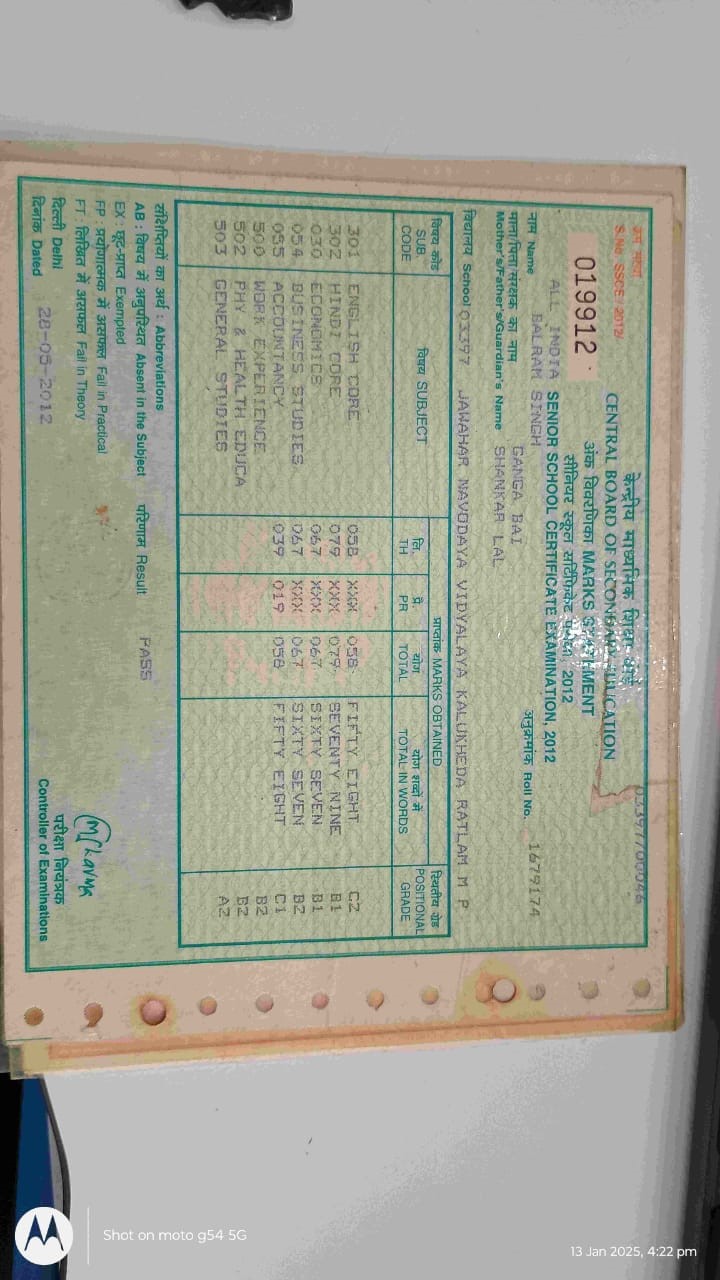 क्रम संख्या
S.No. SSCE / 2012/
019912
03397700046
केन्द्रीय माध्यमिक शिक्षा बोर्ड
CENTRAL BOARD OF SECONDARY EDUCATION
अंक विवरणिका MARKS STATEMENT
सीनियर स्कूल सर्टिफिकेट परीक्षा, 2012
ALL INDIA SENIOR SCHOOL CERTIFICATE EXAMINATION, 2012
नाम Name BALRAM SINGH अनुक्रमांक Roll No. 1679174
माता/पिता/संरक्षक का नाम GANGA BAI
Mother's/Father's/Guardian's Name SHANKAR LAL
विद्यालय School 03397 JAWAHAR NAVODAYA VIDYALAYA KALUKHEDA RATLAM M P
विषय कोड SUB. CODE विषय SUBJECT प्राप्तांक MARKS OBTAINED स्थितीय ग्रेड POSITIONAL GRADE
लि. TH प्रै. PR योग TOTAL योग शब्दों में TOTAL IN WORDS
301 ENGLISH CORE 058 XXX 058 FIFTY EIGHT C2
302 HINDI CORE 079 XXX 079 SEVENTY NINE B1
030 ECONOMICS 067 XXX 067 SIXTY SEVEN B1
054 BUSINESS STUDIES 067 XXX 067 SIXTY SEVEN B2
055 ACCOUNTANCY 039 019 058 FIFTY EIGHT C1
500 WORK EXPERIENCE B2
502 PHY & HEALTH EDUCA B2
503 GENERAL STUDIES A2
संक्षिप्तियों का अर्थ : Abbreviations
AB : विषय में अनुपस्थित Absent in the Subject परिणाम Result PASS
EX : छूट-प्राप्त Exempled
FP : प्रयोगात्मक में असफल Fail in Practical
FT : लिखित में असफल Fail in Theory
दिल्ली Delhi
दिनांक Dated 28-05-2012
MSharma
परीक्षा नियंत्रक
Controller of Examinations
Shot on moto g54 5G
13 Jan 2025, 4:22 pm